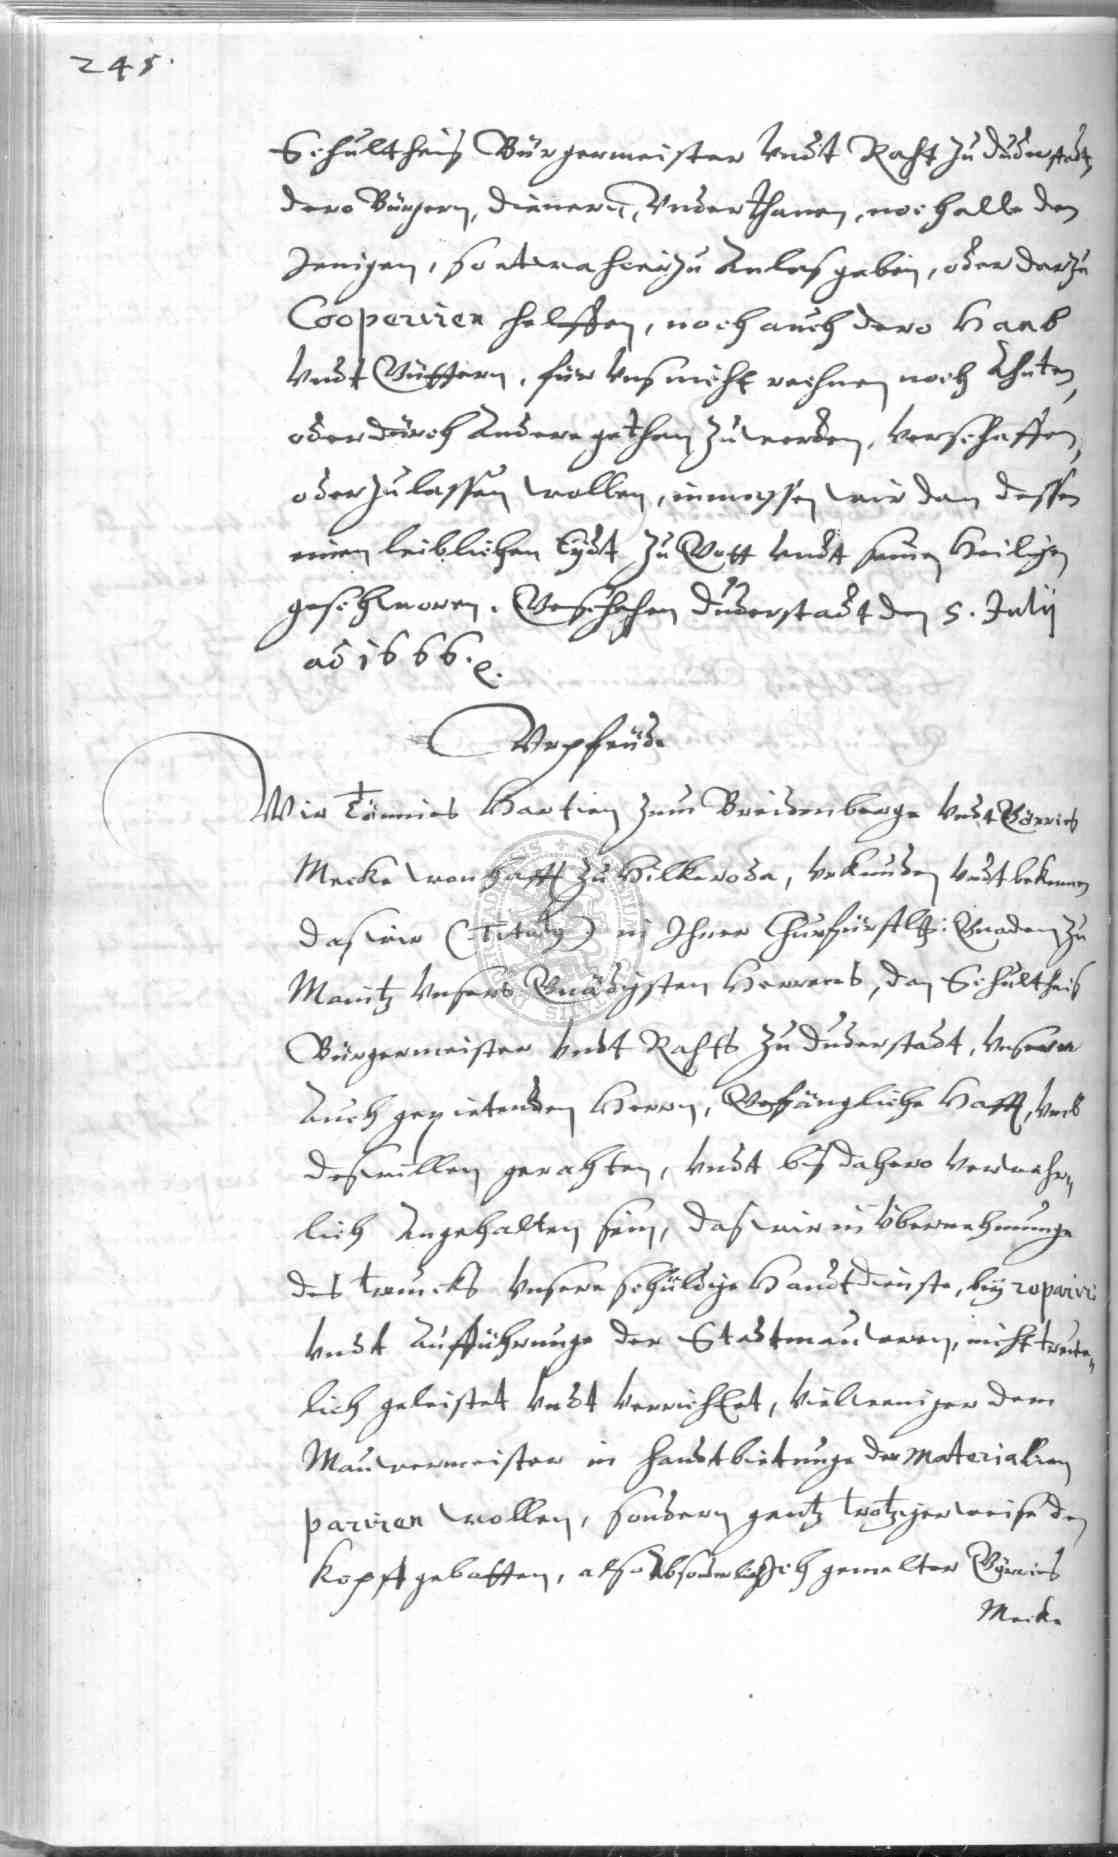 245.
Schultheis Bürgermeister vndt Raht zu duderstadt,
dero Bürgern, dienern, Vnderthanen, noch alle den
Jenigen, so etwa hierzu Anlas geben, oder darzu
Cooperiren helffen, noch auch dero Haab
vndt Güttern, für vns nicht rechnen noch Ahnten,
oder durch Andere gethan zu werden, verschaffen,
oder zulassen wollen, inmassen wir dan dessen
einen leiblichen Eydt zu Gott vndt seinen Heiligen
geschworen. Geschehen duderstadt den 5. July
ao 1666.
Vrpfeide
Wir Tönnies Hartien zum Breidenberge vndt Görries
Mecke wonhafft zu Hilkeroda, vrkunden vndt bekennen
das wir (Titul:) in Ihrer Churfürstl: Gnaden zu
Maintz vnsers Gnädigsten Herrens, den Schultheis
Bürgermeister vndt Rahts zu duderstadt, vnsern
Auch gepietenden Herrn, Gefängliche Hafft, vmb
deswillen gerahten, vndt bis dahero verwahr„
lich Angehalten sein, das wir in Übernehmunge
des truncks vnsere schüldige Handtdienste, bey reparir
vndt Aufführunge der Stadtmauwren, nicht trewe„
lich geleistet vndt verrichtet, viel weniger dem
Mauwermeister in handtbietunge der Materialien
pariren wollen, sondern gantz trotziger weise den
kopff gebotten, also Absonderlich Ich gemelter Görries
Mecke